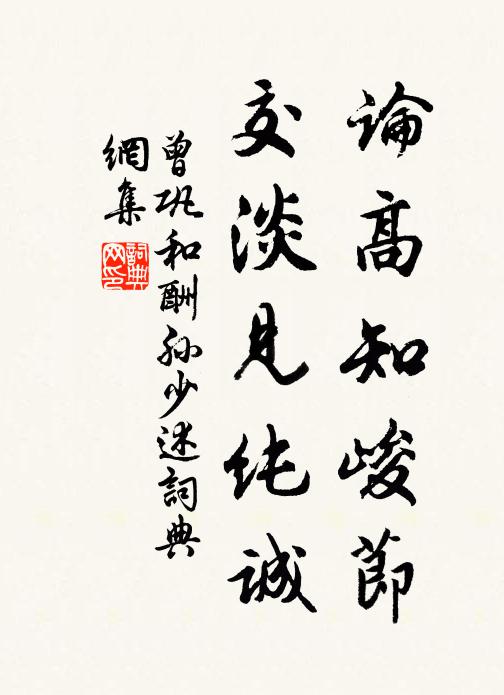 論高知峻節
交淡見純誠
曾巩和酬孙少述詞典
網集
詞典
网印